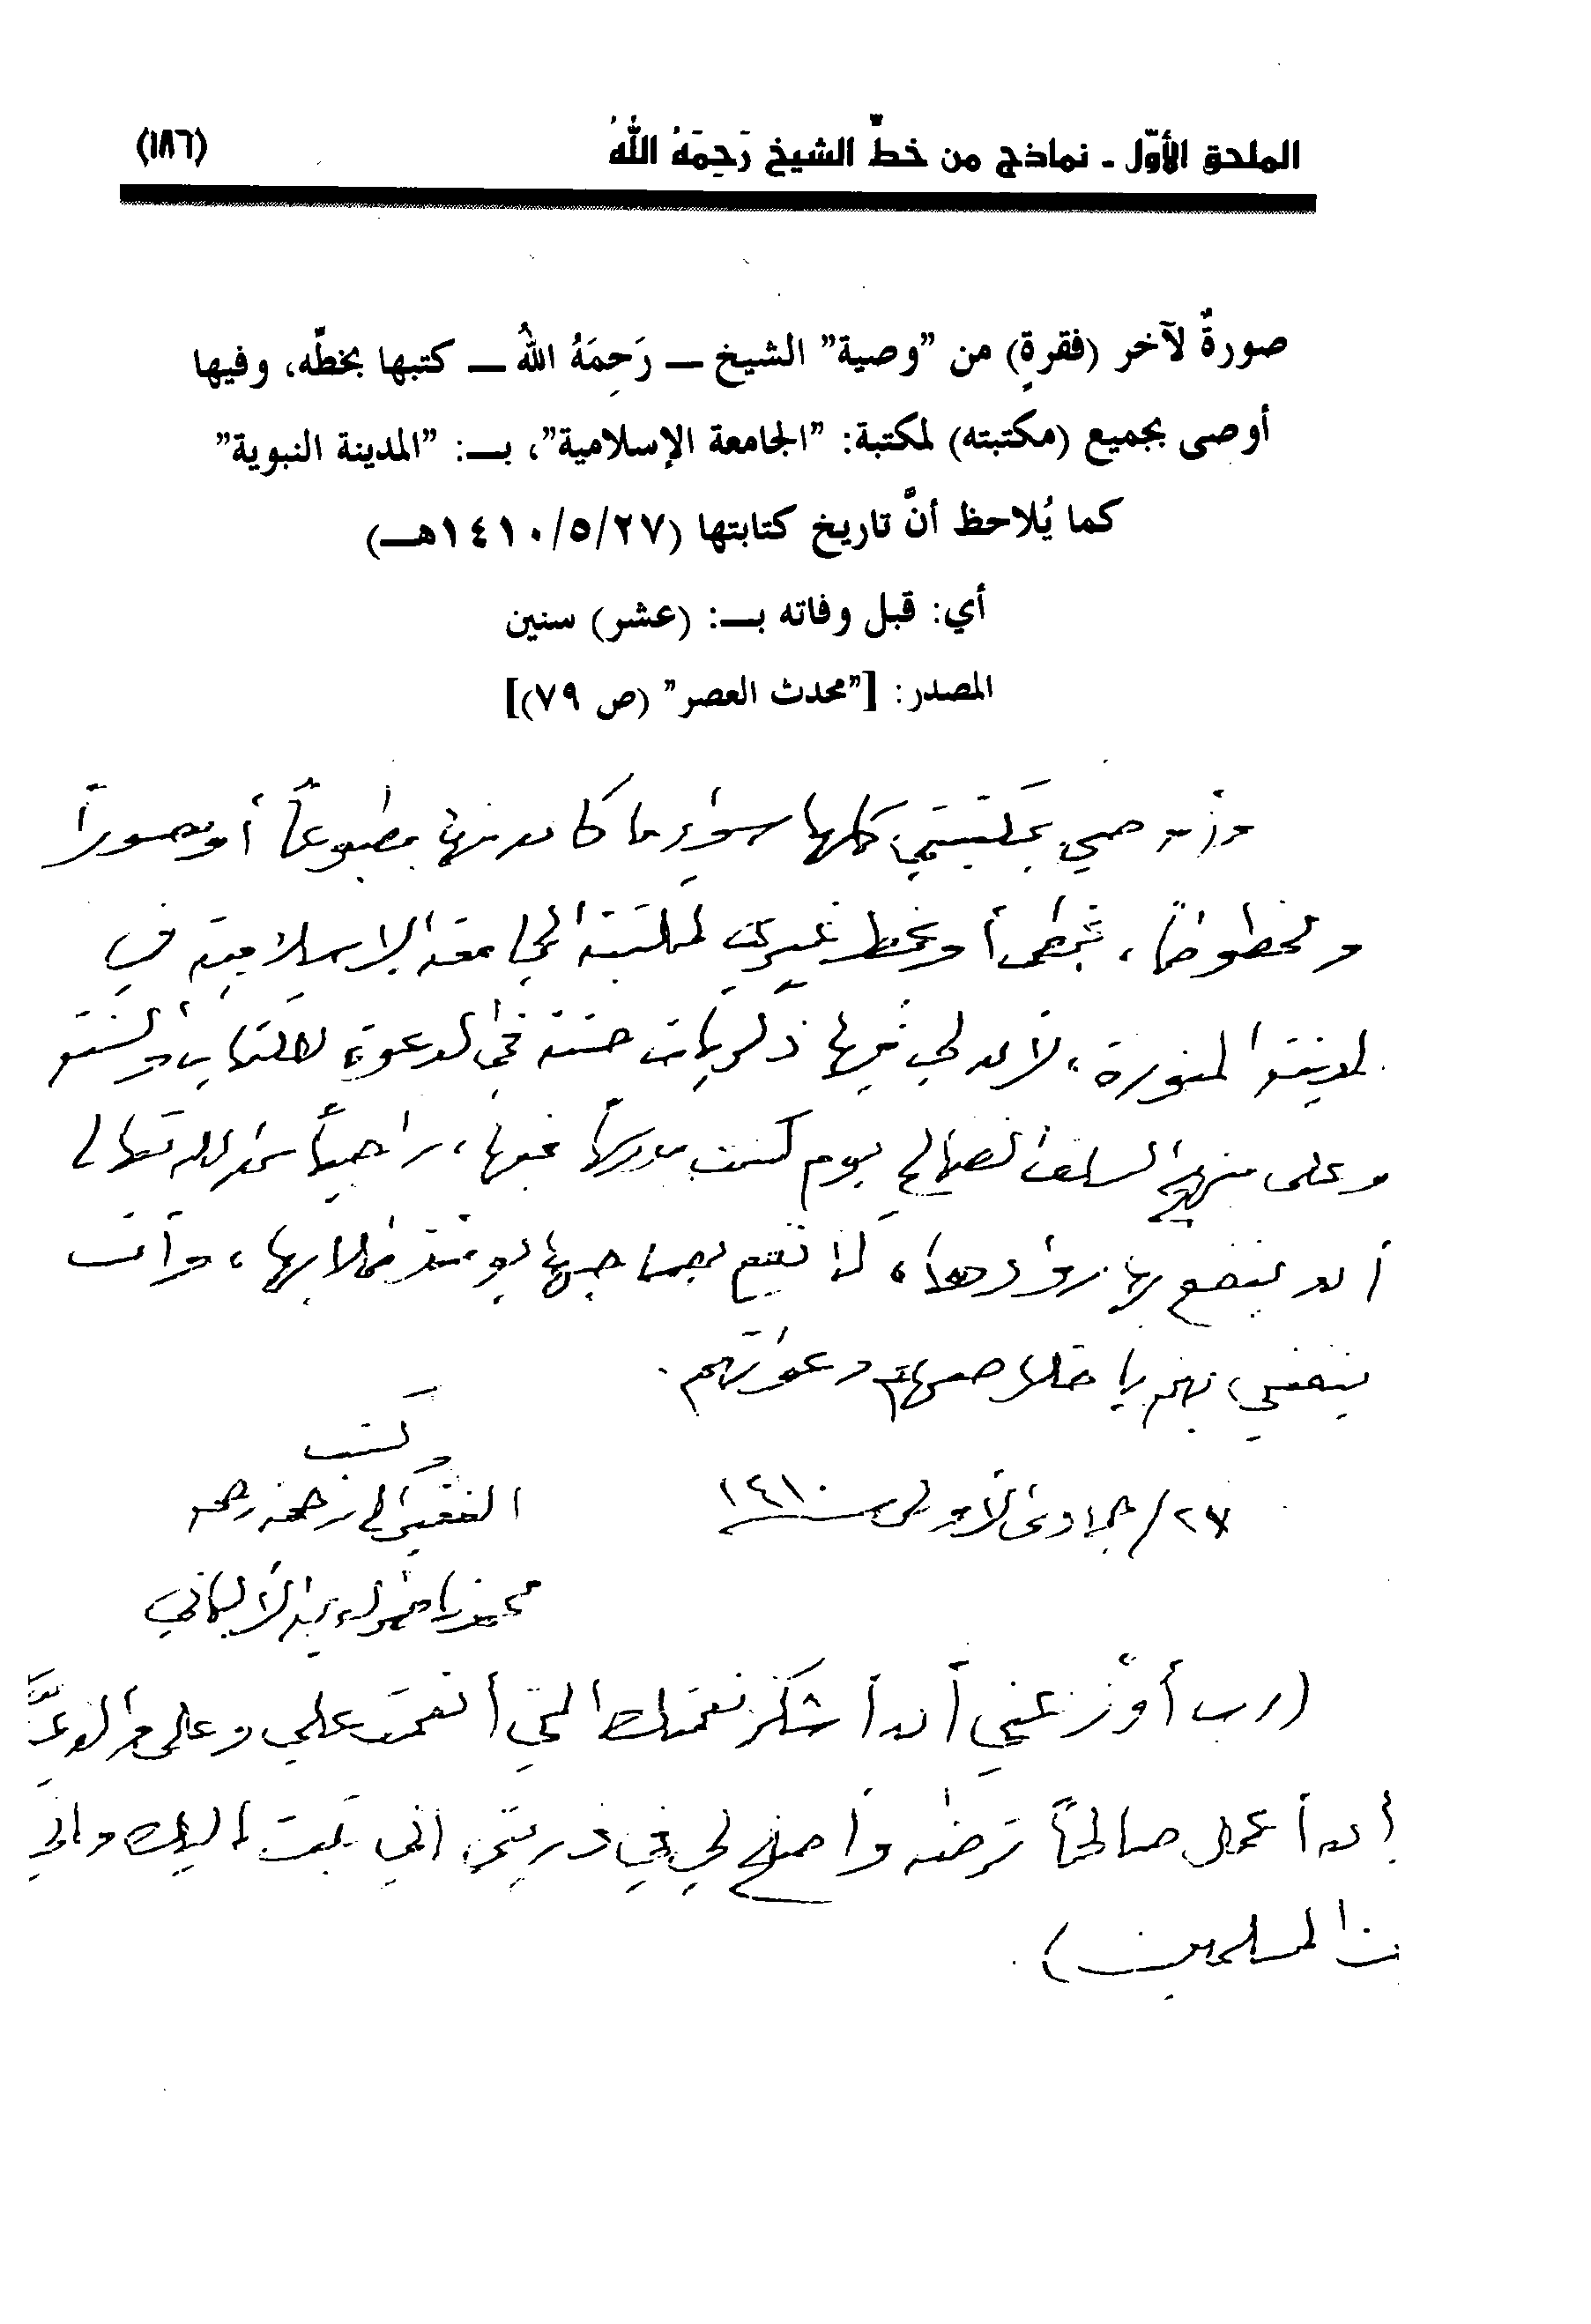 الملحق الأوّل - نماذج من خطِّ الشيخ رَحِمَهُ اللهُ (١٨٦)
صورةٌ لآخر (فقرةٍ) من "وصية" الشيخ – رَحِمَهُ اللهُ – كتبها بخطّه، وفيها
أوصى بجميع (مكتبته) لمكتبة: "الجامعة الإسلامية"، بـ: "المدينة النبوية"
كما يُلاحظ أنَّ تاريخ كتابتها (١٤١٠/٥/٢٧هـ)
أي: قبل وفاته بـ: (عشر) سنين
المصدر: ["محدث العصر" (ص ٧٩)]
وأوصي بمكتبتي كلها سواء ما كان منها مطبوعاً أو مصوراً
و مخطوطاً، بخطي أو بخط غيري لمكتبة الجامعة الإسلامية في
لمدينة المنورة، لأن لي فيها ذكريات حسنة في الدعوة للكتاب والسنة
وعلى منهج السلف الصالح يوم كنت مدرساً فيها، راجياً من الله تعالى
أن ينفع بها روادها، كما نفع بصاحبها يومئذ طلابها، وأن
ينفعني بهم بإخلاصهم ودعواتهم.
وكتب
٢٧/ جمادى الأولى سنة ١٤١٠ الفقير إلى رحمة ربه
محمد ناصر الدين الألباني
(رب أوزعني أن أشكر نعمتك التي أنعمت علي وعلى والديَّ
أن أعمل صالحاً ترضاه وأصلح لي في ذريتي إني تبت إليك وإني
من المسلمين).